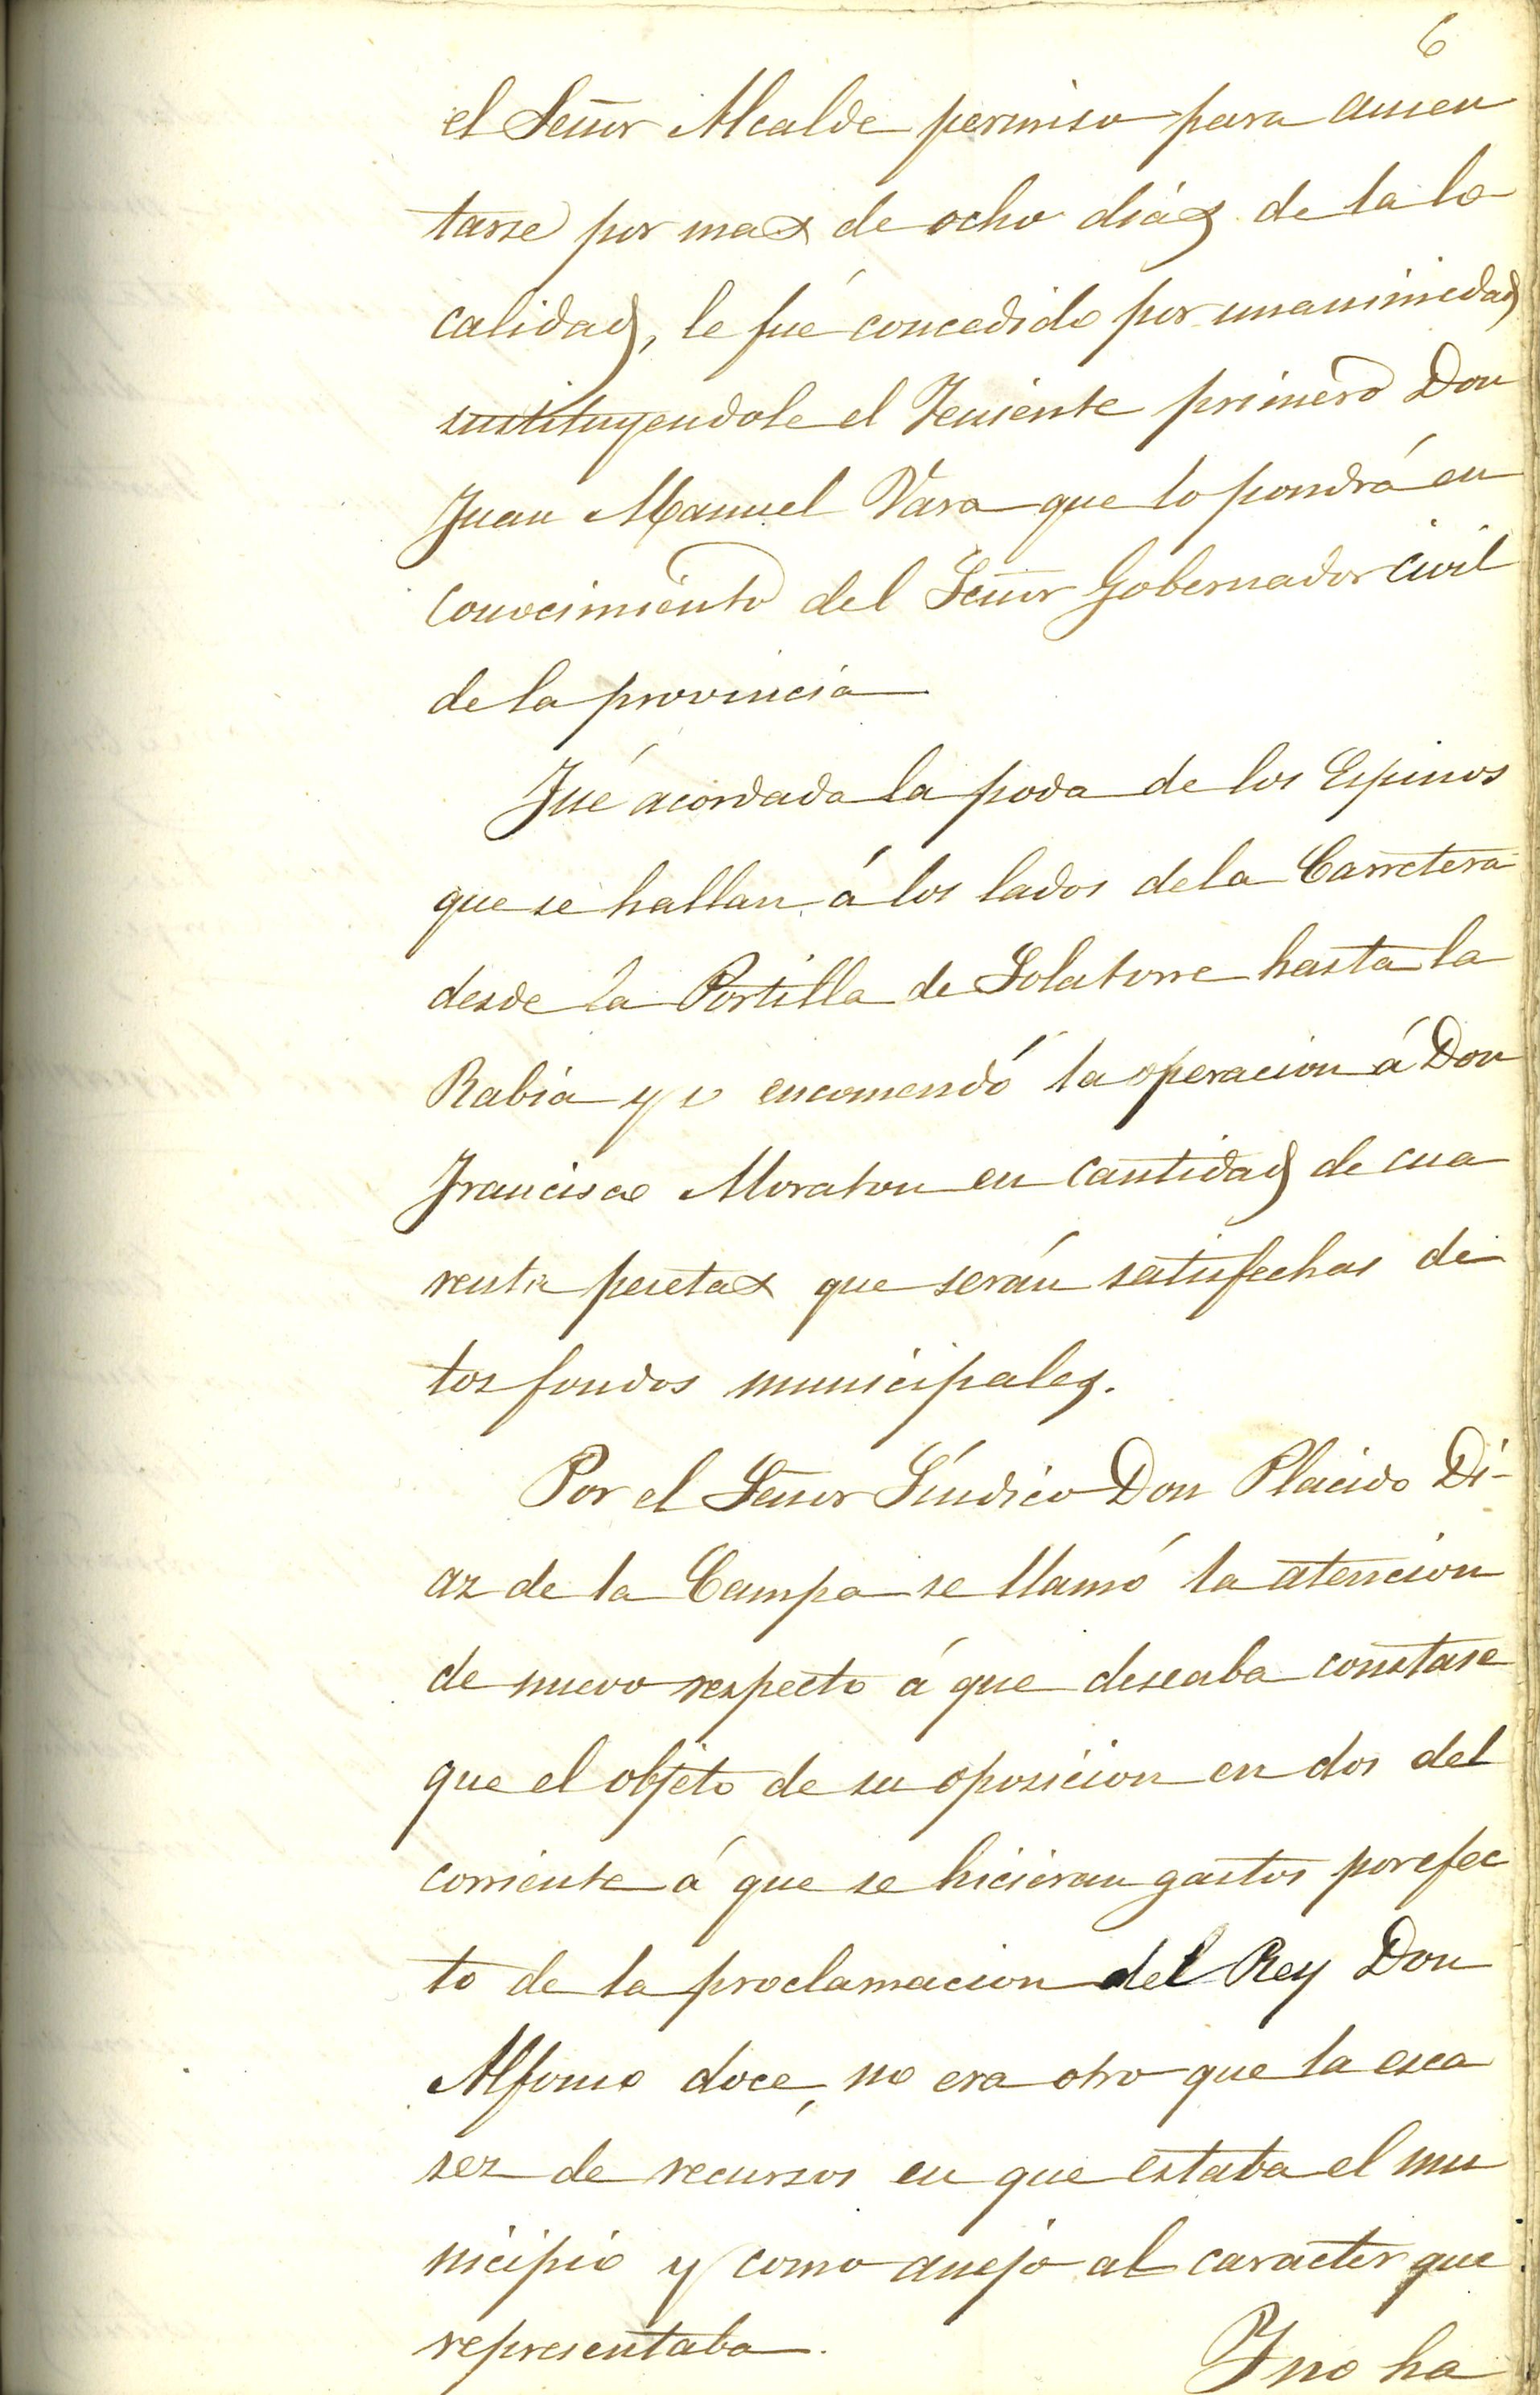 6
el Señor Alcalde permiso para ausen
tarse por mas de ocho diás de la lo
calidad, le fué concedido por unanimidad
sustituyendole el Teniente primero Don
Juan Manuel Vara que lo pondrá en
conocimiento del Señor Gobernador civil
de la provincia
Fué acordada la poda de los Espinos
que se hallan á los lados de la Carretera
desde la Portilla de Solatorre hasta la
Rabia y se encomendó la operacion á Don
Francisco Moraton en cantidad de cua
renta pesetas que serán satisfechas de
los fondos municipales.
Por el Señor Síndico Don Placido Di-
az de la Campa se llamó la atencion
de nuevo respecto á que deseaba constase
que el objeto de su oposicion en dos del
corriente á que se hicieran gastos por efec
to de la proclamacion del Rey Don
Alfonso doce, no era otro que la esca
sez de recursos en que estaba el mu
nicipio y como anejo al caracter que
representaba.
Y no ha